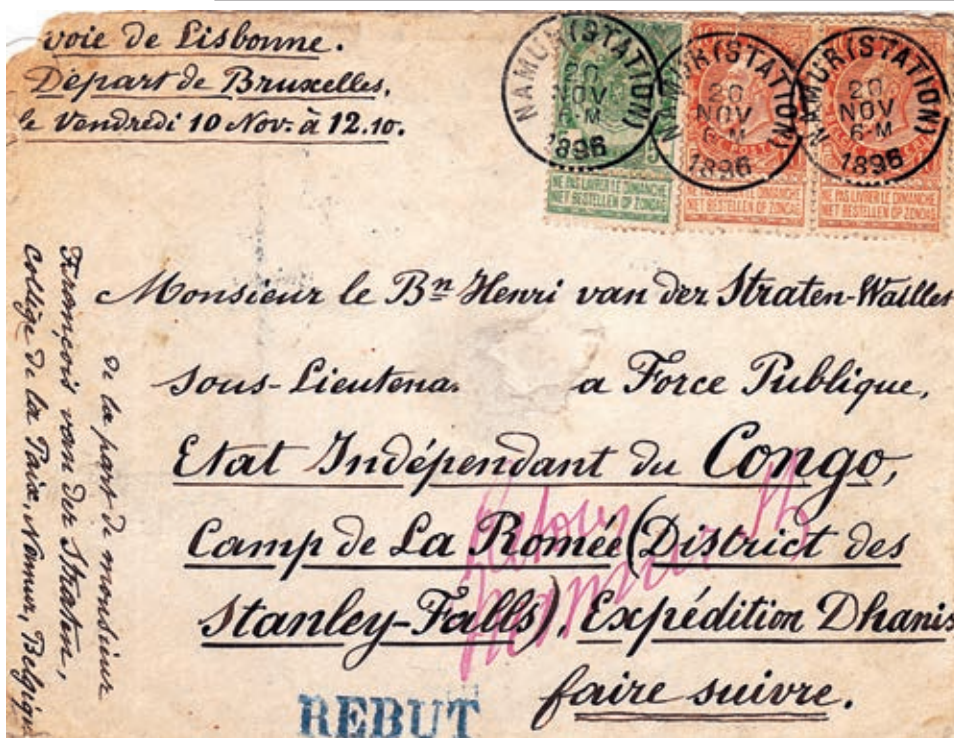 voie de Lisbonne.
Départ de Bruxelles,
le Vendredi 10 Nov. à 12.10.
NAMUR (STATION)
20
NOV
-M
1896
NAMUR (STATION)
20
NOV
6-M
1896
NAMUR (STATION)
20
NOV
6-M
1896
NE PAS LIVRER LE DIMANCHE
NIET BESTELLEN OP ZONDAG
NE PAS LIVRER LE DIMANCHE
NIET BESTELLEN OP ZONDAG
NE PAS LIVRER LE DIMANCHE
NIET BESTELLEN OP ZONDAG
Monsieur le Bⁿ Henri van der Straten-Waillet
sous-Lieutena. a Force Publique,
Etat Indépendant du Congo,
Camp de La Romée (District des
Stanley-Falls), Expédition Dhanis
faire suivre.
de la part de monsieur
François van der Straten,
Collège de la Paix, Namur, Belgique
Retour
Namur
REBUT